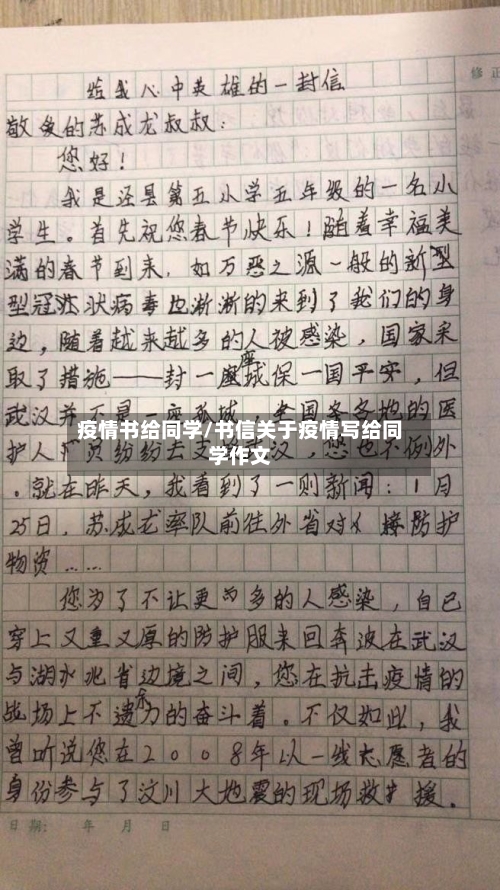 给我心中英雄的一封信
敬爱的苏成龙叔叔:
您好!
我是泾县第五小学五年级的一名小
学生。首先祝您春节快乐!随着幸福美
满的春节到来,如万恶之源一般的新型
型冠状病毒也渐渐的来到了我们的身
边,随着越来越多的人被感染,国家采
取了措施——封一座城保一国平安,但
武汉并不是一座孤城,全国各各地的医
疫情书给同学/书信关于疫情写给同
学作文
护人员纷纷去支援武汉,您也不例外
。就在昨天,我看到了一则新闻:1月
25日,苏成龙率队前往外省对接防护
物资……
您为了不让更多的人感染,自己
穿上又重又厚的防护服来回奔波在武汉
与湖北省边境之间,您在抗击疫情的
战场上不遗余力的奋斗着。不仅如此,我
曾听说您在2008年以一线志愿者的
身份参与了汶川大地震的现场救援。
日期: 年 月 日
修正